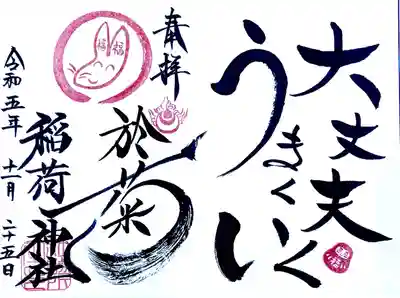 大丈夫
うまくいく
奉拝
福福
於菊
稲荷神社
令和五年
十一月
二十五日